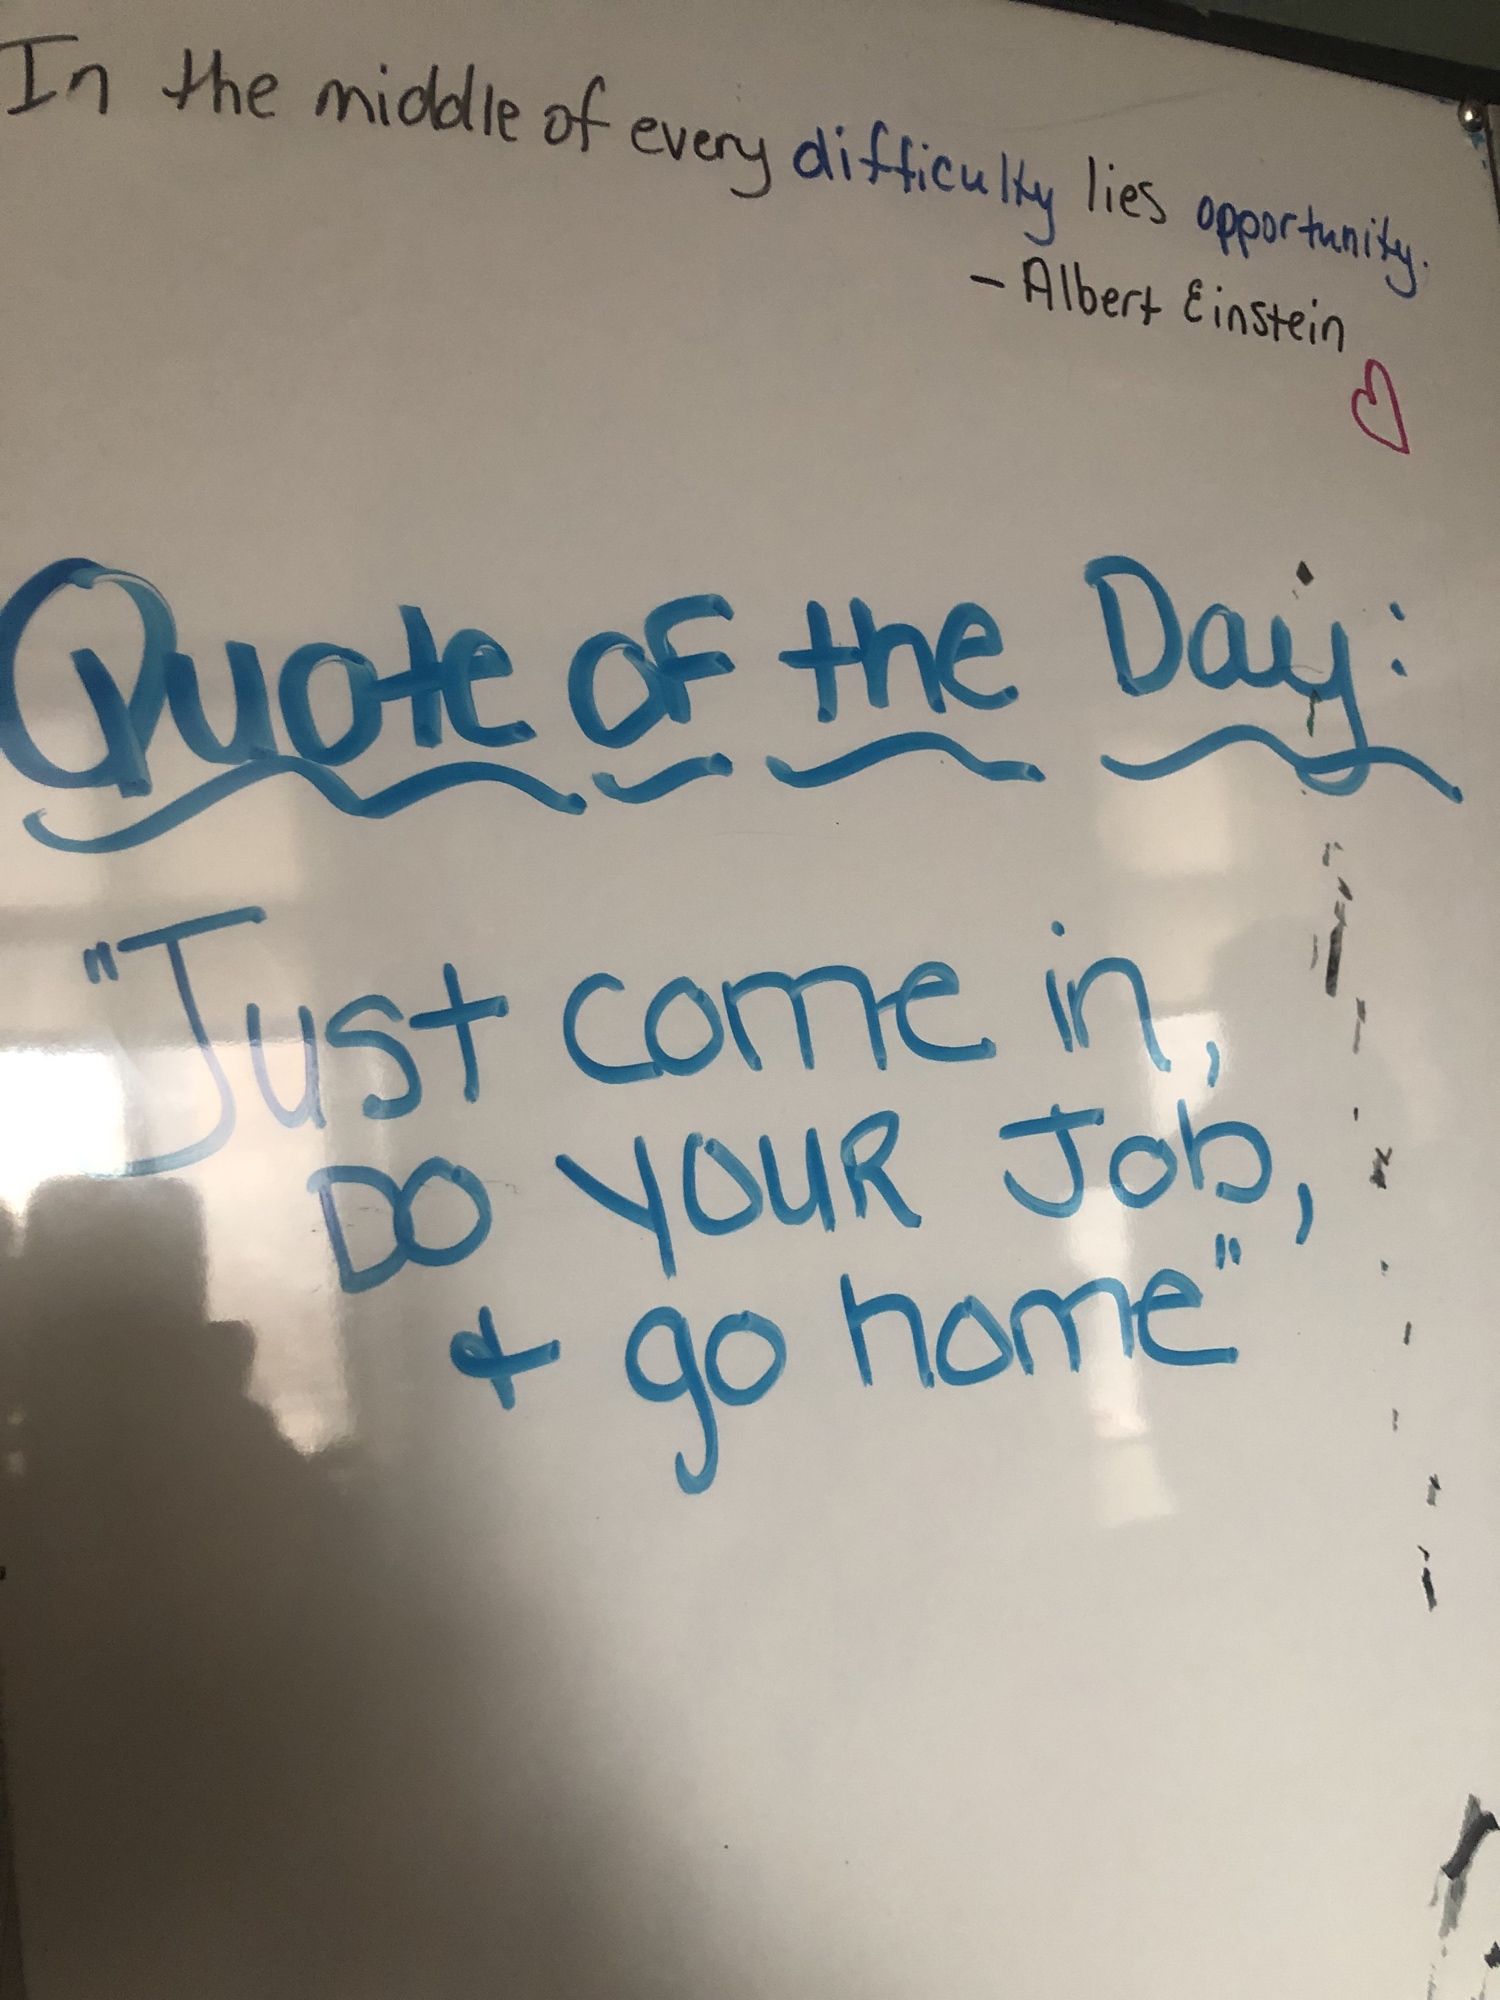 In the middle of every difficulty lies opportunity.
- Albert Einstein
Quote of the Day:
"Just come in,
DO YOUR Job,
& go home"